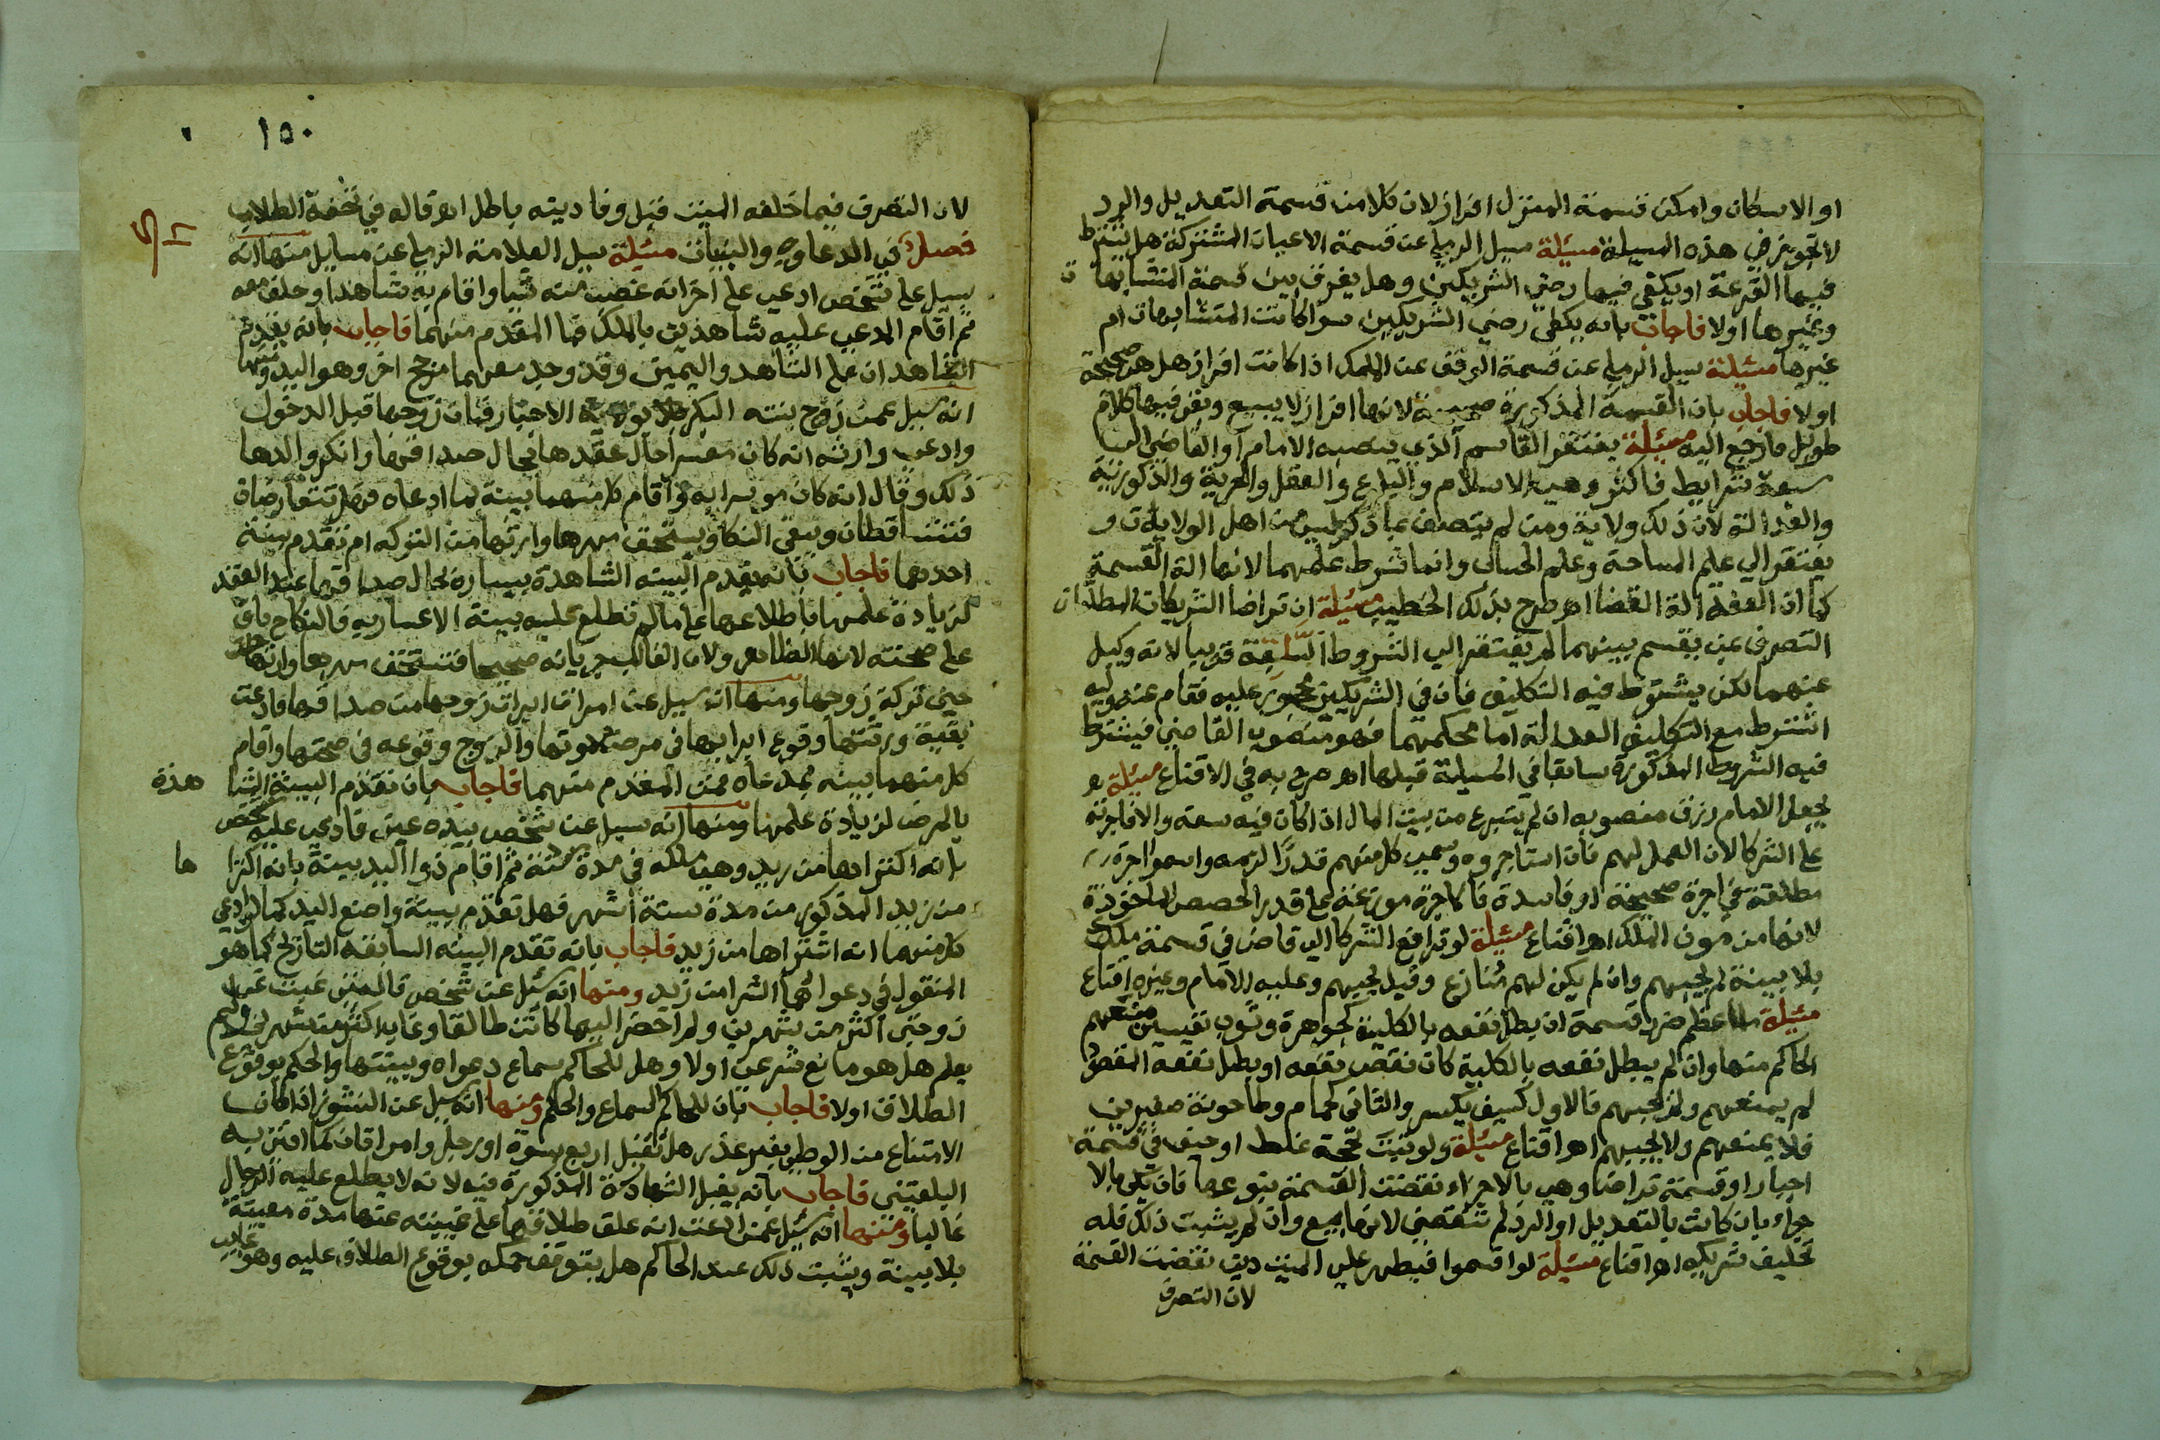 او الاسكان وامكن قسمة المنزل افراز لان كلا من قسمة التعديل والرد
لا تجو في هذه المسيلة مسيلة سيل الرملي عن قسمة الاعيان المشتركة هل يشترط
فيها القرعة او يكفي فيها رضي الشريكين وهل يفرق بين قسمة المتشابهات
وغيرها اولا فاجاب بانه يكفي رضي الشريكين سواكانت المتشابهات ام
غيرها مسيلة سيل الرملي عن قسمة الوقف عن الملك اذا كانت افراز هل هي صحيحة
اولا فاجاب بان القسمة المذكورة صحيحة لانها افراز لا يبيع وفيها كلام
طويل فارجع اليه مسيلة يفتقر القاسم الذي ينصبه الامام او القاضي الى
سبعة شرايط فاكثر وهي الاسلام والبلوغ والعقل والحرية والذكورية
والعدالة لان ذلك ولاية ومن لم يتصف بما ذكر ليس من اهل الولايات و
يفتقر الي علم المساحة وعلم الحساب وانما شرط علمهما لانها الة القسمة
كما ان الفقه الة القضا اهـ صرح بذلك الخطيب مسيلة ان تراضا الشريكان المطلقان
التصرف عن يقسم بينهما لم يفتقر الى الشروط السابقة قريبا لانه وكيل
عنهما لكن يشترط فيه التكليف فان في الشريكين محجور عليه فقام عنه وليه
اشترط مع التكليف العدالة اما محكمهما فهو منصوب القاضي فيشترط
فيه الشروط المذكورة سابقا في المسيلة قبلها اهـ صرح به في الاقناع مسيلة و
يجعل الامام رزق منصوبه ان لم يتبرع من بيت المال اذا كان فيه سعة والا فاجرته
على الشركا لان العمل لهم فان استاجروه وسمي كل منهم قدرا لزمه واسموا اجرة
مطلقة في اجرة صحيحة او فاسدة فالاجرة موزعة على قدر الحصص الماخوذة
لانها من مون الملك اهـ اقناع مسيلة لو ترافع الشركا الى قاض في قسمة ملك
بلا بينة لم يجبهم وان لم يكن لهم منازع وقيل يجيبهم وعليه الامام وغيره اقناع
مسيلة ما عظم ضرر قسمة ان بطل نفعه بالكلية كجوهرة وثوب نفيسين منعهم
الحاكم منها وان لم يبطل نفعه بالكلية كان نقص نفعه او بطل نفعه المقصود
لم يمنعهم ولم يجبهم فالاول كسيف يكسر والثاني كحمام وطاحونة صغيرين
فلا يمنعهم ولا يجيبهم اهـ اقناع مسيلة ولو ثبت بحجة غلط او حيف في قسمة
اجبار او قسمة تراضا وهي بالاجزاء نقضت القسمة بنوعها فان لم تكن بالا
جزاء بان كانت بالتعديل او الرد لم تنقض لانها بيع وان لم يثبت ذلك فله
تحليف شريكه اهـ اقناع مسيلة لو اقسموا فيظهر على الميت دين نقضت القسمة
لان التصرف
١٥٠
لان التصرف فيما خلفه الميت قبل وفا دينه باطل اهـ قاله في تحفة الطلاب
فصل في الدعاوي والبينات مسيلة سيل العلامة الرملي عن مسايل منها انه
سيل علي شخص ادعي علي اخر انه غصب منه شيا واقام به شاهدا وحلف معه
ثم اقام المدعي عليه شاهدين بالملك فما المقدم منهما فاجاب بانه يقدم
الشاهدان علي الشاهد واليمين وقد وجد معهما مرجح اخر وهو اليد ومنها
انه سيل عمن زوج بنته البكر بولاية الاجبار فمات زوجها قبل الدخول
وادعي وارثه انه كان معسرا حال عقدها بحال صداقها وانكر والدها
ذلك وقال انه كان موسرا به واقام كل منهما بينة لما ادعاه فهل تتعارضان
فتتساقطان ويبقي النكاح وتستحق مهرها وارثها من التركه ام تقدم بينة
احدهما فاجاب بانه يقدم البينه الشاهدة بيساره بحال صداقها عند العقد
لزيادة علمها باطلاعها علي ما لم تطلع عليه بينة الاعسار به فالنكاح باق
علي صحته لانها الظاهر ولان الغالب جريانه صحيحا فتستحق مهرها وارثها
حتي تركة زوجها ومنها انه سيل عن امراة ابرات زوجها من صداقها فادعت
بقية ورثتها وقوع ابرايها في مرض موتها والزوج وقوعه في صحتها واقام
كل منهما بينه بمدعاه فمن المقدم منهما فاجاب بان تقدم البينة الشا هذة
بالمرض لزيادة علمها ومنها انه سيل عن شخص بيده عين فادعي عليه شخص
بانه اكتراها من زيد وهي ملكه في مدة سنة ثم اقام ذو اليد بينة بانه اكترا ها
من زيد المذكور من مدة ستة اشهر فهل تقدم بينة واضع اليد كما لو ادعي
كل منهما انه اشتراها من زيد فاجاب بانه تقدم البينه السابقه التاريخ كما هو
المنقول في دعواهما الشرا من زيد ومنها انه سيل عن شخص قال متي غبت عن
زوجتي اكثر من شهرين ولم احضر اليها كانت طالقا وغاب اكثر من شهرين ولم
يعلم هل هو مانع شرعي اولا وهل للحاكم سماع دعواه وبينتها والحكم بوقوع
الطلاق اولا فاجاب بان للحاكم السماع والحكم ومنها انه سيل عن النشوز اذا كان
الامتناع من الوطي بغير عذر هل تقبل اربع نسوة او رجل وامراتان كما افتي به
البلقيني فاجاب بانه يقبل الشهادة المذكورة فيه لانه لا يطلع عليه الرجال
غالبا ومنها انه سيل عمن ادعت انه علق طلاقها علي غيبته عنها مدة معينة
بلا بينة ويثبت ذلك عند الحاكم هل يتوقف حكمه بوقوع الطلاق عليه وهو غايب